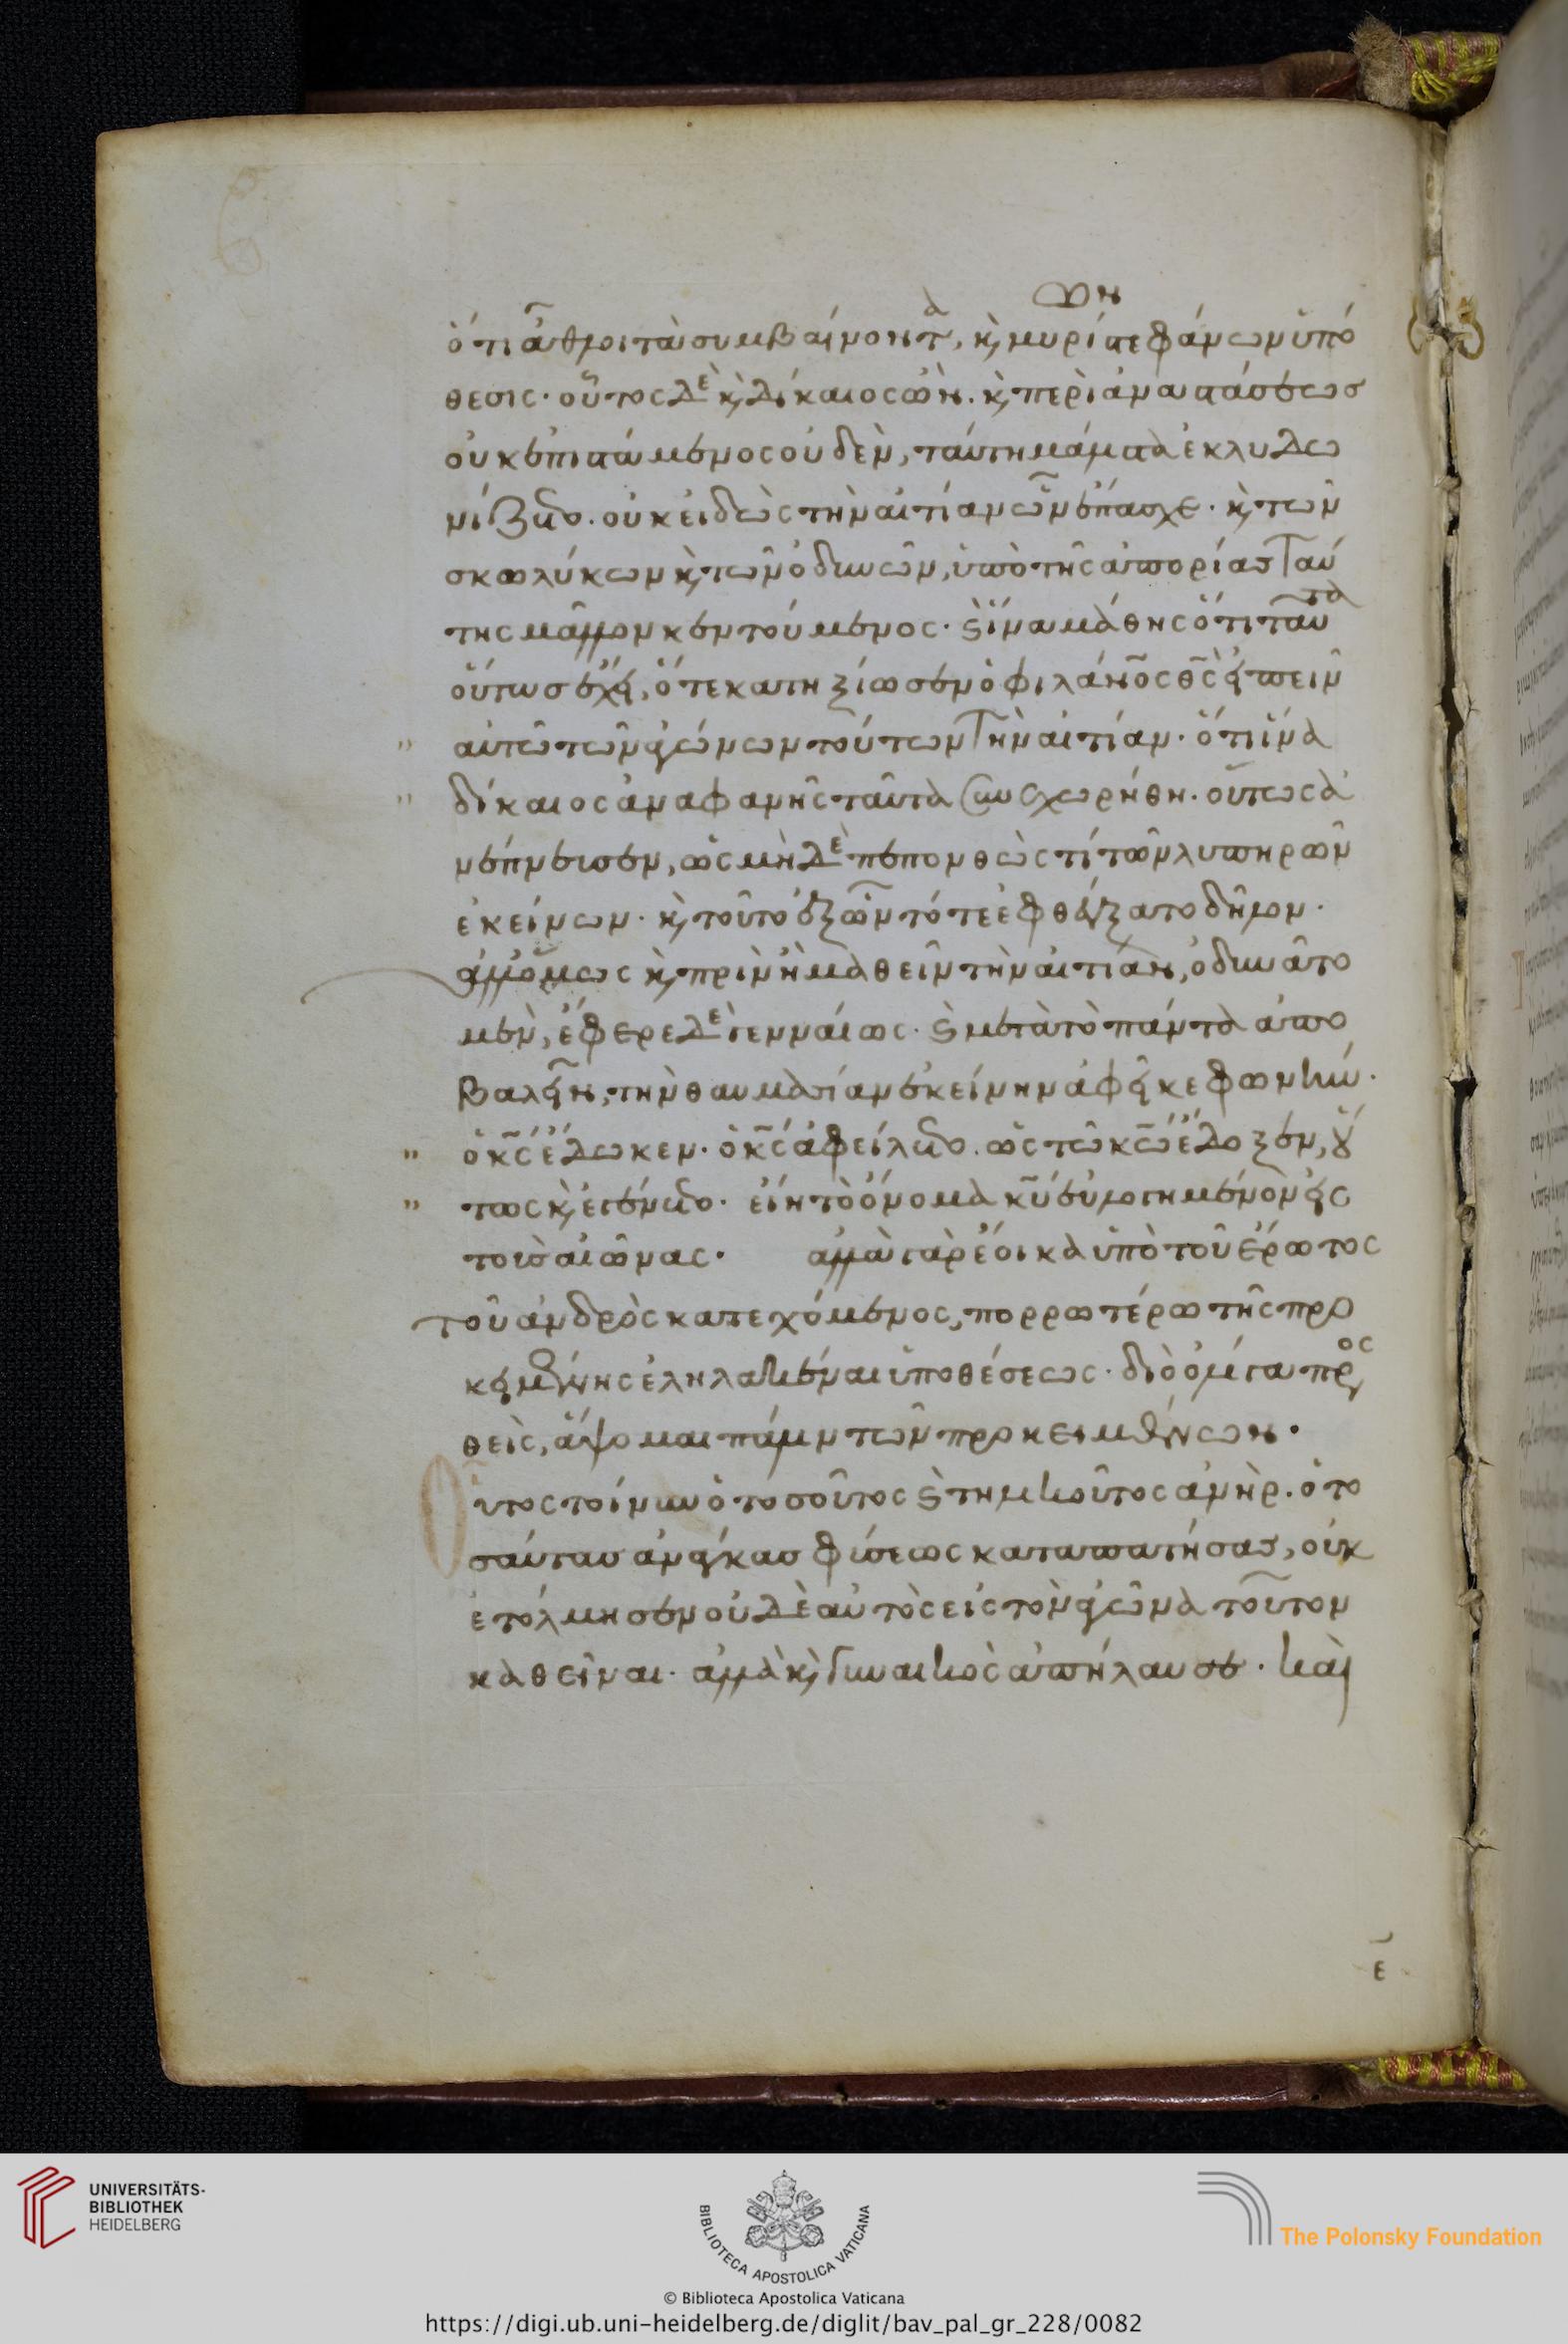 ὅτι ἆθλοι τὰ συμβαίνοντα, κ̀ μυρίων στεφάνων ὑπό
θεσις· οὗτος δὲ κ̀ δίκαιος ὢν. κ̀ περὶ ἀναστάσεως
οὐκ ἐπιστάμενος οὐδὲν, ταύτη μάλιστα ἐκλυδω
νίζετο. οὐκ εἰδὼς τὴν αἰτίαν ὧν ἔπασχε· κ̀ τῶν
σκωλήκων κ̀ τῶν ὀδυνῶν, ὑπὸ τῆς ἀπορίας ταύ
της μᾶλλον κεντούμενος· κ̀ ἵνα μάθης ὅτι ταῦτα
οὕτως ἔχει, ὅτε κατηξίωσεν ὁ φιλάνος θς εἰπεῖν
αὐτῶ τῶν ἀγώνων τούτων τὴν αἰτίαν· ὅτι ἵνα
δίκαιος ἀναφανῆς ταῦτα συνεχωρήθη· οὕτως ἀ
νέπνευσεν, ὡς μηδὲ πεπονθὼς τί τῶν λυπηρῶν
ἐκείνων· κ̀ τοῦτο ἐξ ὧν τότε ἐφθέγξατο δῆλον·
ἀλλ' ὅμως κ̀ πρὶν ἢ μαθεῖν τὴν αἰτίαν, ὀδυνᾶτο
μὲν, ἔφερε δὲ γενναίως· κ̀ μετὰ τὸ πάντα ἀπο
βαλεῖν, τὴν θαυμασίαν ἐκείνην ἀφῆκε φωνήν·
ὁ κς ἔδωκεν· ὁ κς ἀφείλετο. ὡς τῶ κω ἔδοξεν, οὕ
τως κ̀ ἐγένετο· εἴη τὸ ὄνομα κυ εὐλογημένον εἰς
τοὺς αἰῶνας· ἀλλὰ γὰρ ἔοικα ὑπὸ τοῦ ἔρωτος
τοῦ ἀνδρὸς κατεχόμενος, πορρωτέρω τῆς προ
κειμένης ἐληλακέναι ὑποθέσεως· διὸ ὀλίγα προς
θεὶς, ἅψομαι πάλιν τῶν προκειμένων·
Οὗτος τοίνυν ὁ τοσοῦτος κ̀ τηλικοῦτος ἀνὴρ. ὁ το
σαύτας ἀνάγκας φύσεως καταπατήσας, οὐκ
ἐτόλμησεν οὐδὲ αὐτὸς εἰς τὸν ἀγῶνα τοῦτον
καθεῖναι· ἀλλὰ κ̀ γυναικὸς ἀπήλαυσε· καὶ
ε
UNIVERSITÄTS-
BIBLIOTHEK
HEIDELBERG
BIBLIOTECA APOSTOLICA VATICANA
The Polonsky Foundation
© Biblioteca Apostolica Vaticana
https://digi.ub.uni-heidelberg.de/diglit/bav_pal_gr_228/0082